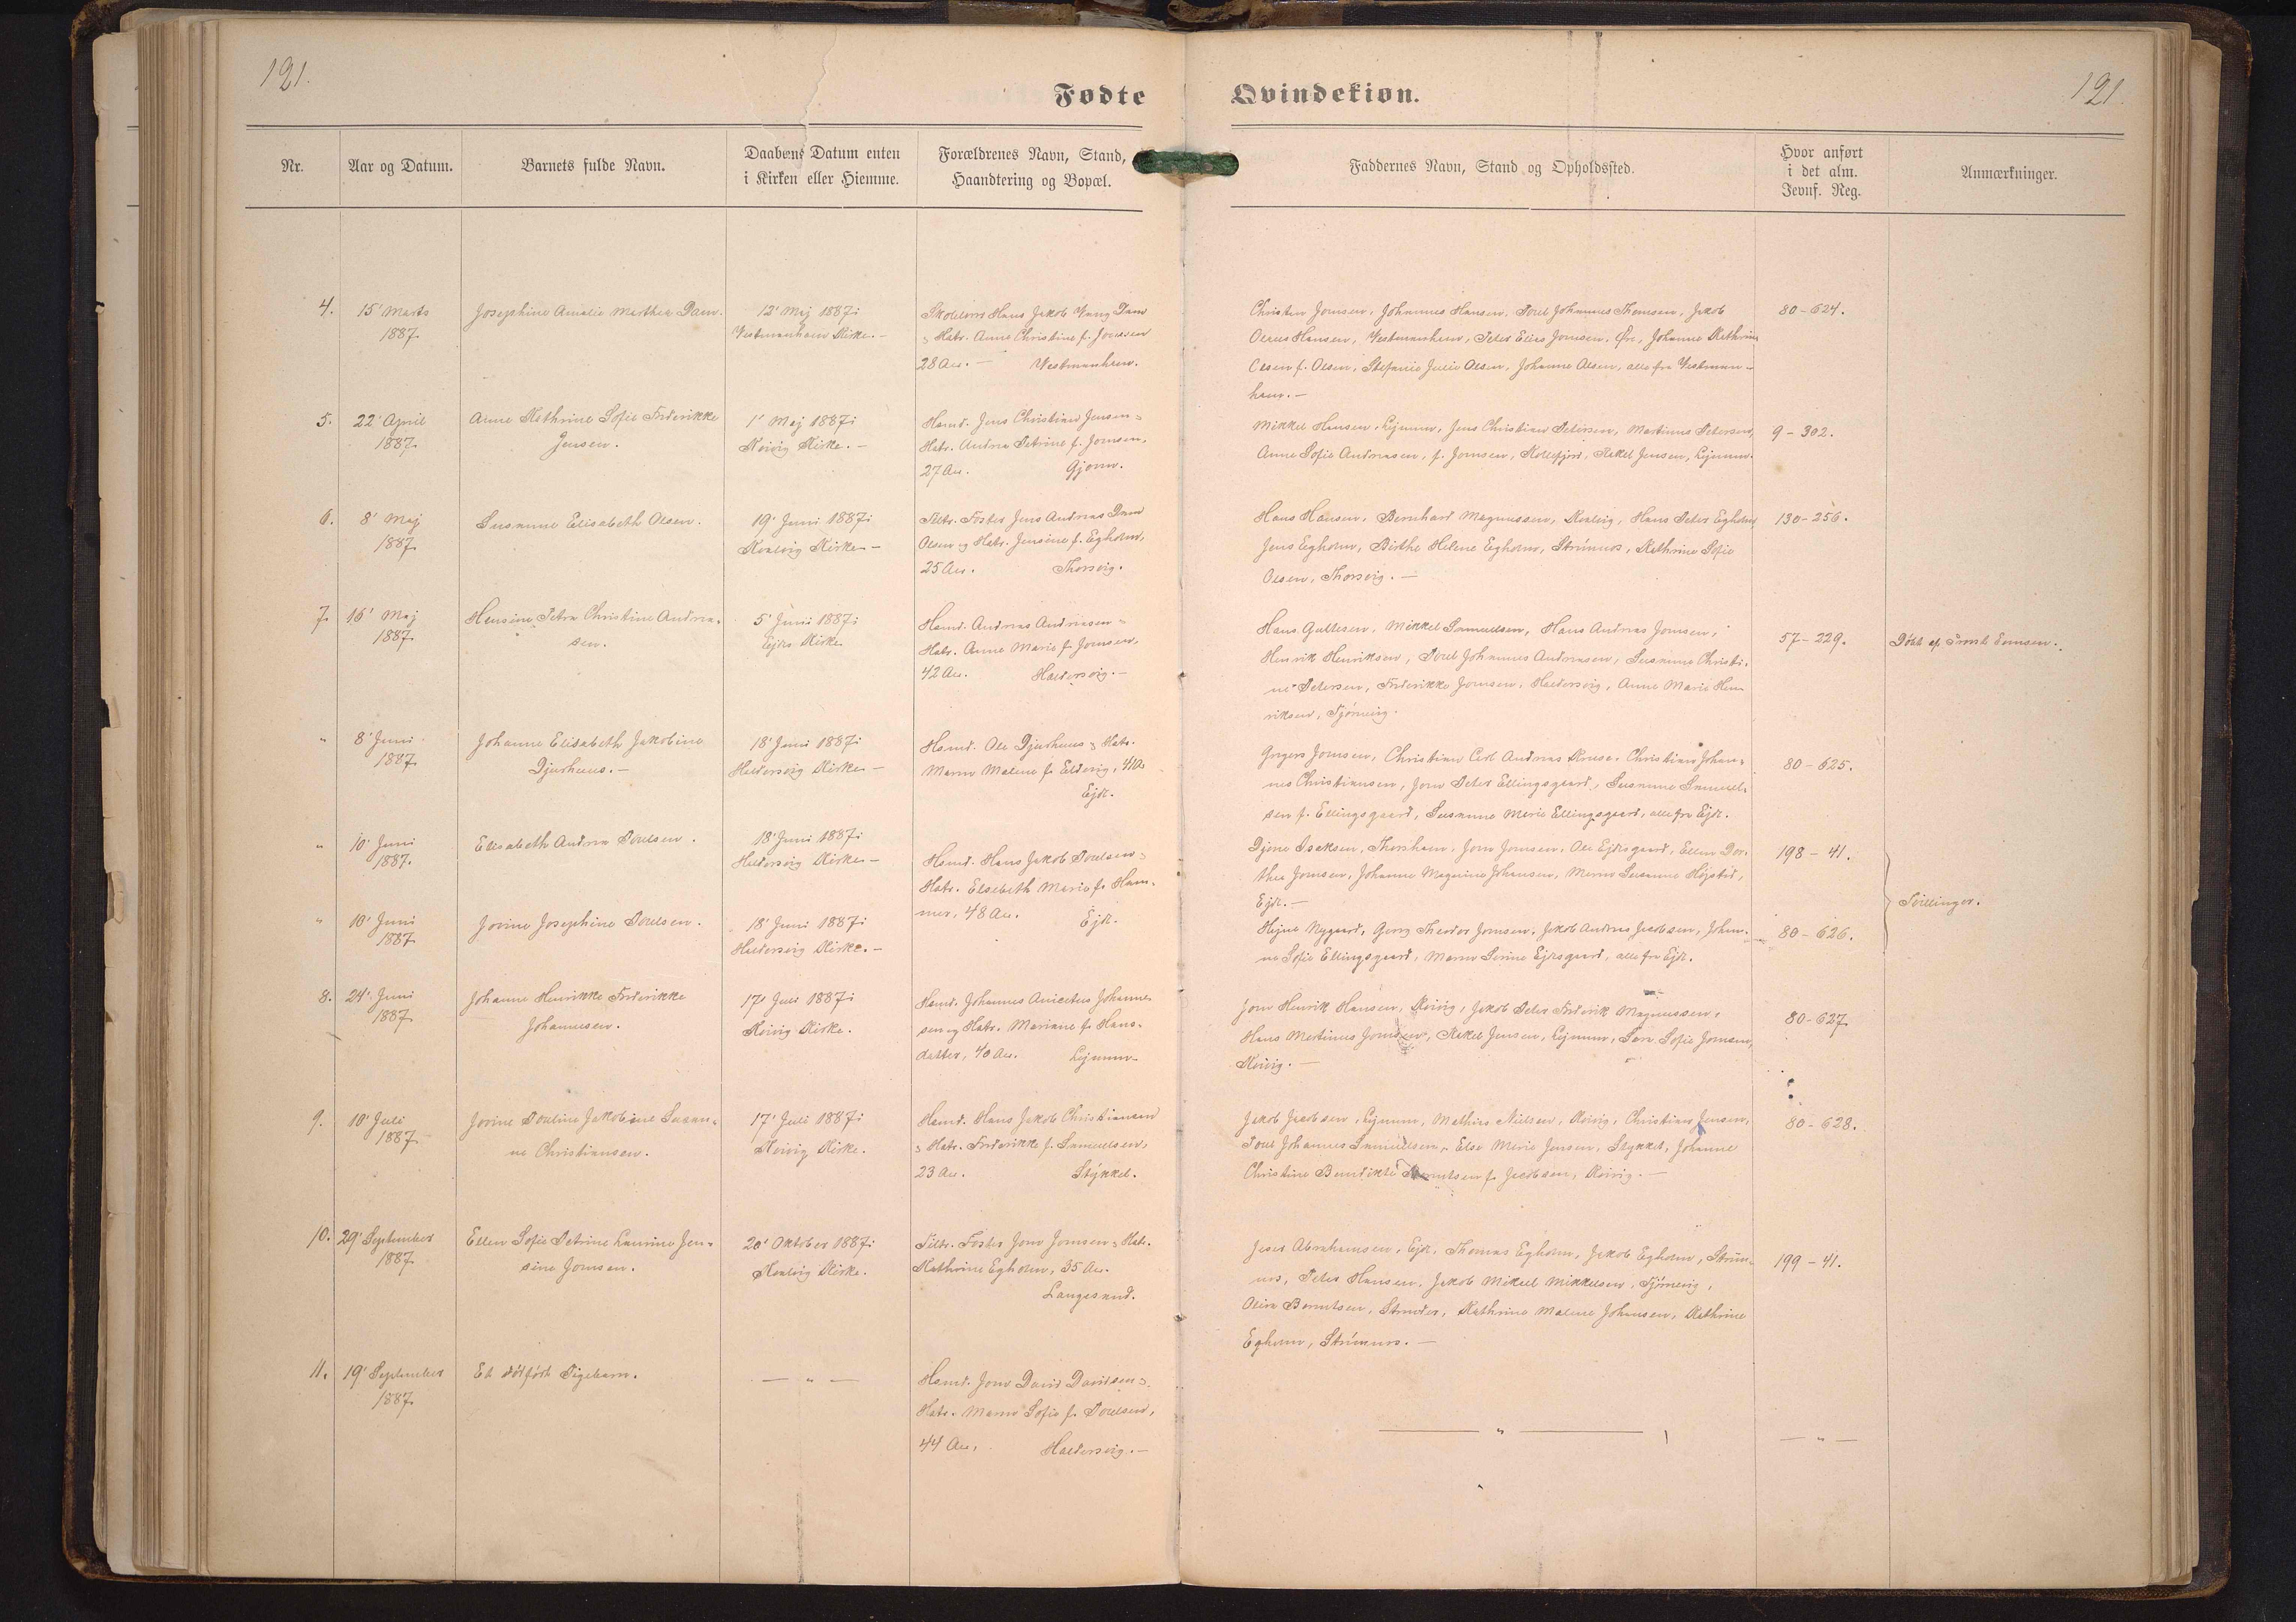 121.
Fødte
Qvindekiøn.
121.
Nr.
Aar og Datum.
Barnets fulde Navn.
Daabens Datum enten
i Kirken eller Hiemme.
Forældrenes Navn, Stand,
Haandtering og Bopæl.
Faddernes Navn, Stand og Opholdssted.
Hvor anført
i det alm.
Jevnf. Reg.
Anmærkninger.
4. 15' Marts
1887.
Josephine Amalie Marthea Dam.
12' Maj 1887 i
Vestmanhavn Kirke. –
Hans Jakob Dam
Hstr. Anne Christine f. Joensen
28 Aar. – Vestmanhavn.
Christen Joensen, Johannes Hansen, Poul Johannes Thomsen, Jakob
Hansen, Vestmanhavn, Peter Elias Joensen, Øre, Johanne Kathrine
Olsen f. Olsen, Stefanie Julie Olsen, Johanne Olsen, alle fra Vestman-
havn. –
80 – 624.
5. 22' April
1887.
Anne Kathrine Sofie Frederikke
Jensen.
1' Maj 1887 i
Kvivig Kirke. –
Hmd. Jens Christian Jensen
Hstr. Andrea Petrine f. Joensen,
27 Aar. Gjonv.
Mikkel Hansen, Lejnum, Jens Christian Petersen, Martinus Petersen,
Anne Sofie Andreasen, f. Joensen, Kollefjord, Jensen, Lejnum.
9 – 302.
6. 8' Maj
1887.
Susanne Elisabeth Olsen.
19' Juni 1887 i
Kirke –
Fæster Jens Andreas
Olsen og Hstr. Jensine f. Egholm,
25 Aar. Thorsvig.
Hans Hansen, Bernhard Magnussen, Hans Peter Egholm,
Jens Egholm, Birthe Helene Egholm, Strømnæs, Kathrine Sofie
Olsen, Thorsvig. –
130 – 256.
7. 16' Maj
1887.
Hensine Petra Christine Andrea-
sen.
5' Juni 1887 i
Ejdes Kirke
Hmd. Andreas Andreasen
Hstr. Anne Marie f. Joensen,
42 Aar. Haldersvig. –
Hans Guttesen, Mikkel Samuelsen, Hans Andreas Joensen,
Henrik Henriksen, Poul Johannes Andreasen, Susanne Christi-
ne Petersen, Frederikke Joensen, Haldersvig, Anne Marie Hen-
riksen, Tjørnevig.
57 – 229.
Døbt af Provst Evensen.
" 8' Juni
1887.
Johanne Elisabeth Jakobine
Djurhuus. –
18' Juni 1887 i
Haldersvig Kirke –
Hmd. Ole Djurhuus Hstr.
Maren Malene f. Eldevig, 41 Aar
Ejde.
Joensen, Christian Carl Andreas Kruse, Christian Johan-
nes Christiansen, Joen Peter Ellingsgaard, Susanne Samuel-
sen f. Ellingsgaard, Susanne Marie Ellingsgaard, alle fra Ejde.
80 – 625.
" 10' Juni
1887.
Elisabeth Andrea Poulsen.
18' Juni 1887 i
Haldersvig Kirke –
Hmd. Hans Jakob Poulsen
Hstr. Elsebeth Marie f. Ham-
mer, 48 Aar. Ejde.
Djone Isaksen, Thorshavn, Joen Joensen, Ole Ejdesgaard, Ellen Dor-
thea Joensen, Johanne Magnine Johansen, Maren Susanne Højsted,
Ejde. –
198 – 41.
Tvillinger.
" 10' Juni
1887.
Jovine Josephine Poulsen.
18' Juni 1887 i
Haldersvig Kirke. –
Hejne Nygaard, Georg Theodor Joensen, Jakob Andreas Jacobsen, Johan-
ne Sofie Ellingsgaard, Maren Serine Ejdesgaard, alle fra Ejde.
80 – 626.
8. 24' Juni
1887.
Johanne Henrikke Frederikke
Johannesen.
17' Juli 1887 i
Kvivig Kirke.
Hmd. Johannes Anicetus Johanne-
sen og Hstr. Mariane f. Hans-
datter, 40 Aar. Lejnum.
Joen Henrik Hansen, Kvivig, Jakob Peter Frederik Magnussen,
Hans Martinus Joensen, Jensen, Lejnum, Sara Sofie Joensen,
Kvivig. –
80 – 627.
9. 10' Juli
1887.
Jovine Pouline Jakobine Susan-
ne Christiansen.
17' Juli 1887 i
Kvivig Kirke.
Hmd. Hans Jakob Christiansen
Hstr. Frederikke f. Samuelsen,
23 Aar. Stykket.
Jakob Jacobsen, Lejnum, Mathias Nielsen, Kvivig, Christian Jensen,
Poul Johannes Samuelsen, Else Marie Jensen, Stykket, Johanne
Christine Bendikte Berntsen f. Jacobsen, Kvivig. –
80 – 628.
10. 29' September
1887.
Ellen Sofie Petrine Laurine Jen-
sine Joensen.
20' Oktober 1887 i
Kirke.
Fæster Joen Joensen Hstr.
Kathrine Egholm, 35 Aar.
Langesand.
Abrahamsen, Ejde, Thomas Egholm, Jakob Egholm, Strøm-
næs, Peter Hansen, Jakob Mikael Mikkelsen, Tjørnevig,
Olivia Berntsen, Kathrine Malene Johansen, Kathrine
Egholm, Strømnæs. –
199 – 41.
11. 19' September
1887.
Et dødfødt Pigebarn.
— " —
Hmd. Joen David Davidsen
Hstr. Maren Sofie f. Poulsen,
44 Aar. Haldersvig. –
— " —
— " —